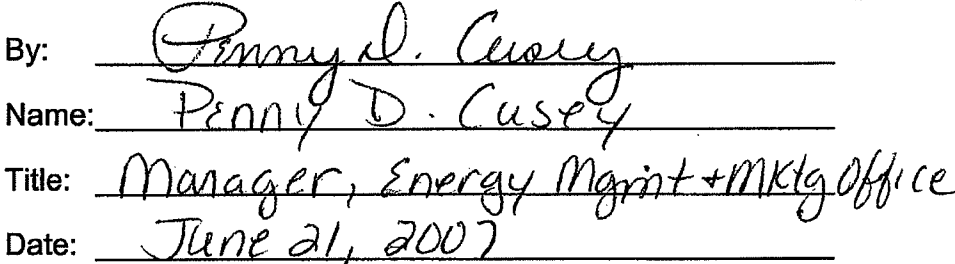 By: Penny D. Cusey
Name: Penny D. Cusey
Title: Manager, Energy Mgmt + Mktg Office
Date: June 21, 2007